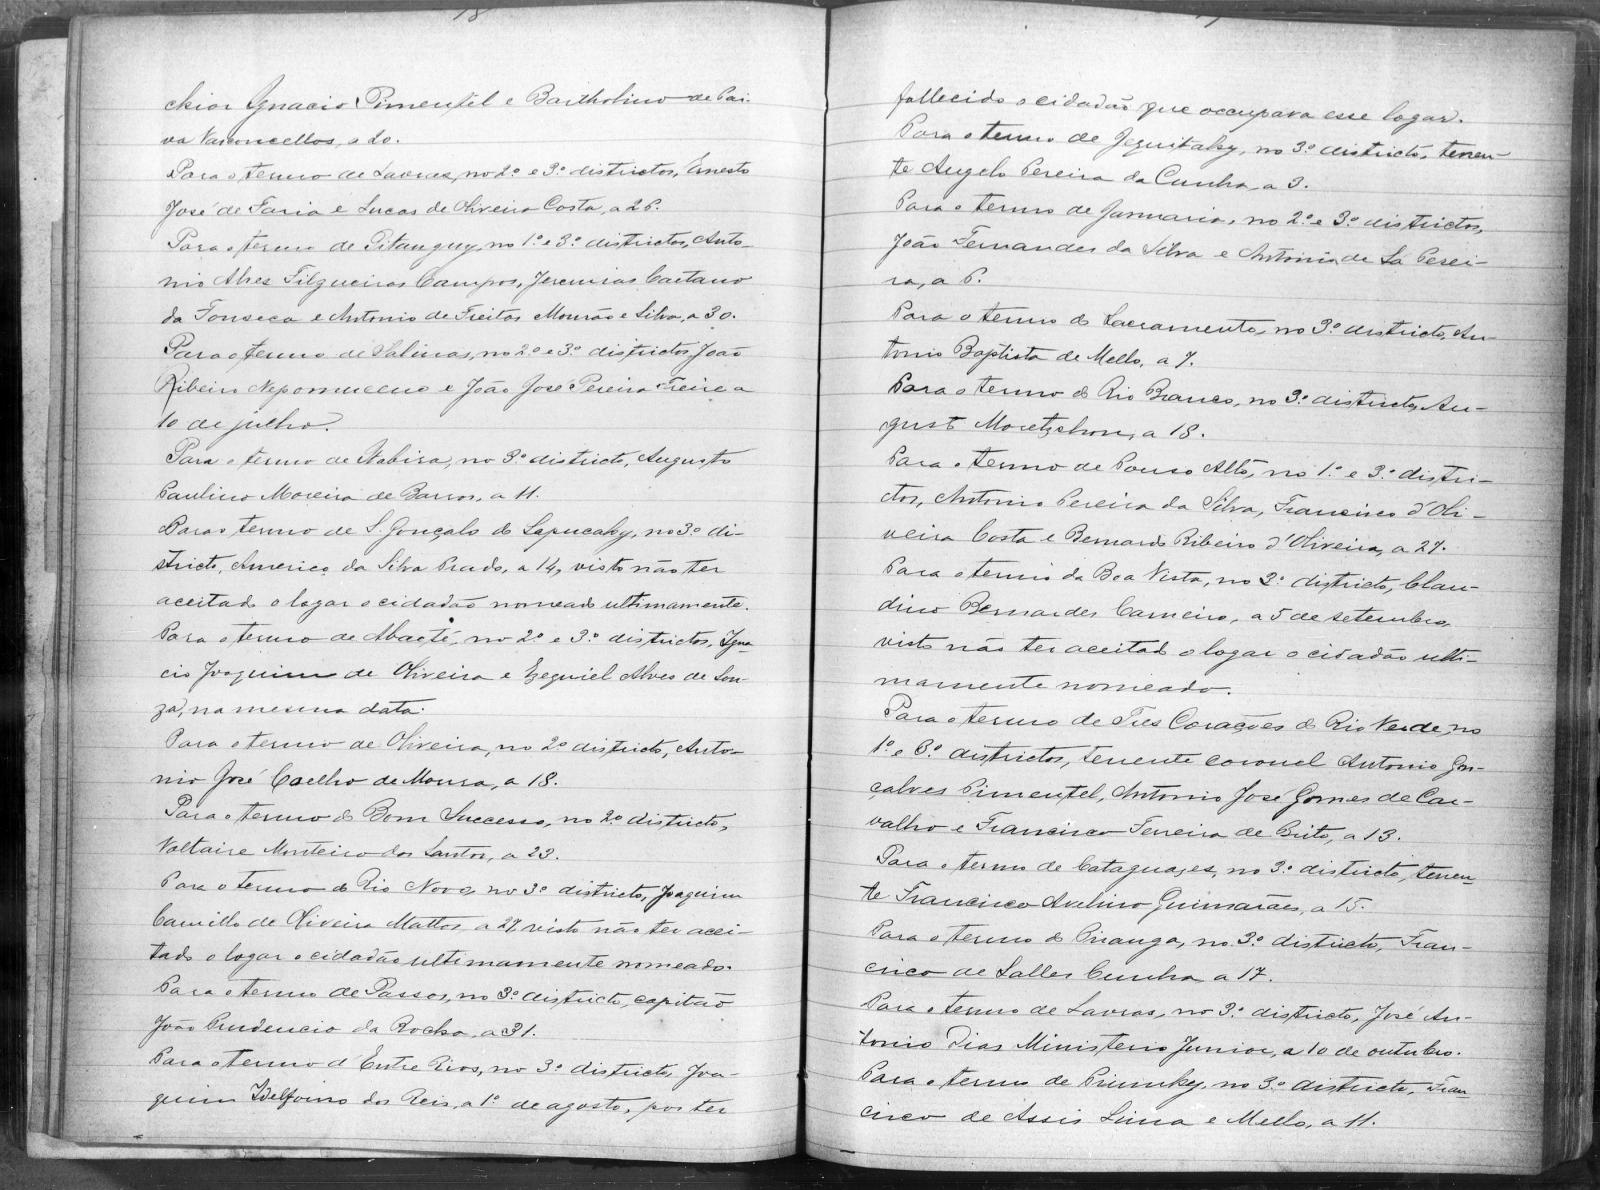 chior Ignacio Pimentel e Bartholino de Pai-
va Vasconcellos, a 20.
Para o termo de Lavras, no 2º e 3º districtos, Ernesto
José de Faria e Lucas de Oliveira Costa, a 26.
Para o termo de Pitanguy, no 1º e 3º districtos, Anto-
nio Alves Filgueiras Campos, Jeremias Caetano
da Fonseca e Antonio de Freitas Mourão e Silva, a 30.
Para o termo de Salinas, no 2º e 3º districtos, João
Ribeiro Nepomuceno e João José Pereira Freire a
10 de julho.
Para o termo de Itabira, no 3º districto, Augusto
Paulino Moreira de Barros, a 11.
Para o termo de S. Gonçalo do Sapucahy, no 3º di-
stricto, Americo da Silva Prado, a 14, visto não ter
aceitado o logar o cidadão nomeado ultimamente.
Para o termo de Abaeté, no 2º e 3º districtos, Igna-
cio Joaquim de Oliveira e Ezequiel Alves de Sou-
za, na mesma data.
Para o termo de Oliveira, no 2º districto, Anto-
nio José Coelho de Moura, a 18.
Para o termo do Bom Successo, no 2º districto,
Voltaire Monteiro dos Santos, a 23.
Para o termo do Rio Novo, no 3º districto, Joaquim
Camillo de Oliveira Mattos, a 27, visto não ter acei-
tado o logar o cidadão ultimamente nomeado.
Para o termo de Passos, no 3º districto, capitão
João Prudencio da Rocha, a 31.
Para o termo d'Entre Rios, no 3º districto, Joa-
quim Idelfonso dos Reis, a 1º de agosto, por ter
fallecido o cidadão que occupava esse logar.
Para o termo de Jequitahy, no 3º districto, tenen-
te Angelo Pereira da Cunha, a 3.
Para o termo de Januaria, no 2º e 3º districtos,
João Fernandes da Silva e Antonio de Sa Perei-
ra, a 6.
Para o termo do Sacramento, no 3º districto, An-
tonio Baptista de Mello, a 7.
Para o termo do Rio Branco, no 3º districto, Au-
gust Moretzshon, a 18.
Para o termo de Pouso Alto, no 1º e 3º distri-
ctos, Antonio Pereira da Silva, Francisco d'Oli-
veira Costa e Bernardo Ribeiro d'Oliveira, a 27.
Para o termo da Boa Vista, no 3º districto, Clau-
dino Bernardes Carneiro, a 5 de setembro,
visto não ter aceitado o logar o cidadão ulti-
mamente nomeado.
Para o termo de Tres Corações do Rio Verde, no
1º e 3º districtos, tenente coronel Antonio Gon-
çalves Pimentel, Antonio José Gomes de Car-
valho e Francisco Ferreira de Brito, a 13.
Para o termo de Cataguazes, no 3º districto, tenen-
te Francisco Avelino Guimarães, a 15.
Para o termo do Piranga, no 3º districto, Fran-
cisco de Salles Cunha, a 17.
Para o termo de Lavras, no 3º districto, José An-
tonio Dias Ministerio Junior, a 10 de outubro.
Para o termo de Piumhy, no 3º districto, Fran
cisco de Assis Lima e Mello, a 11.